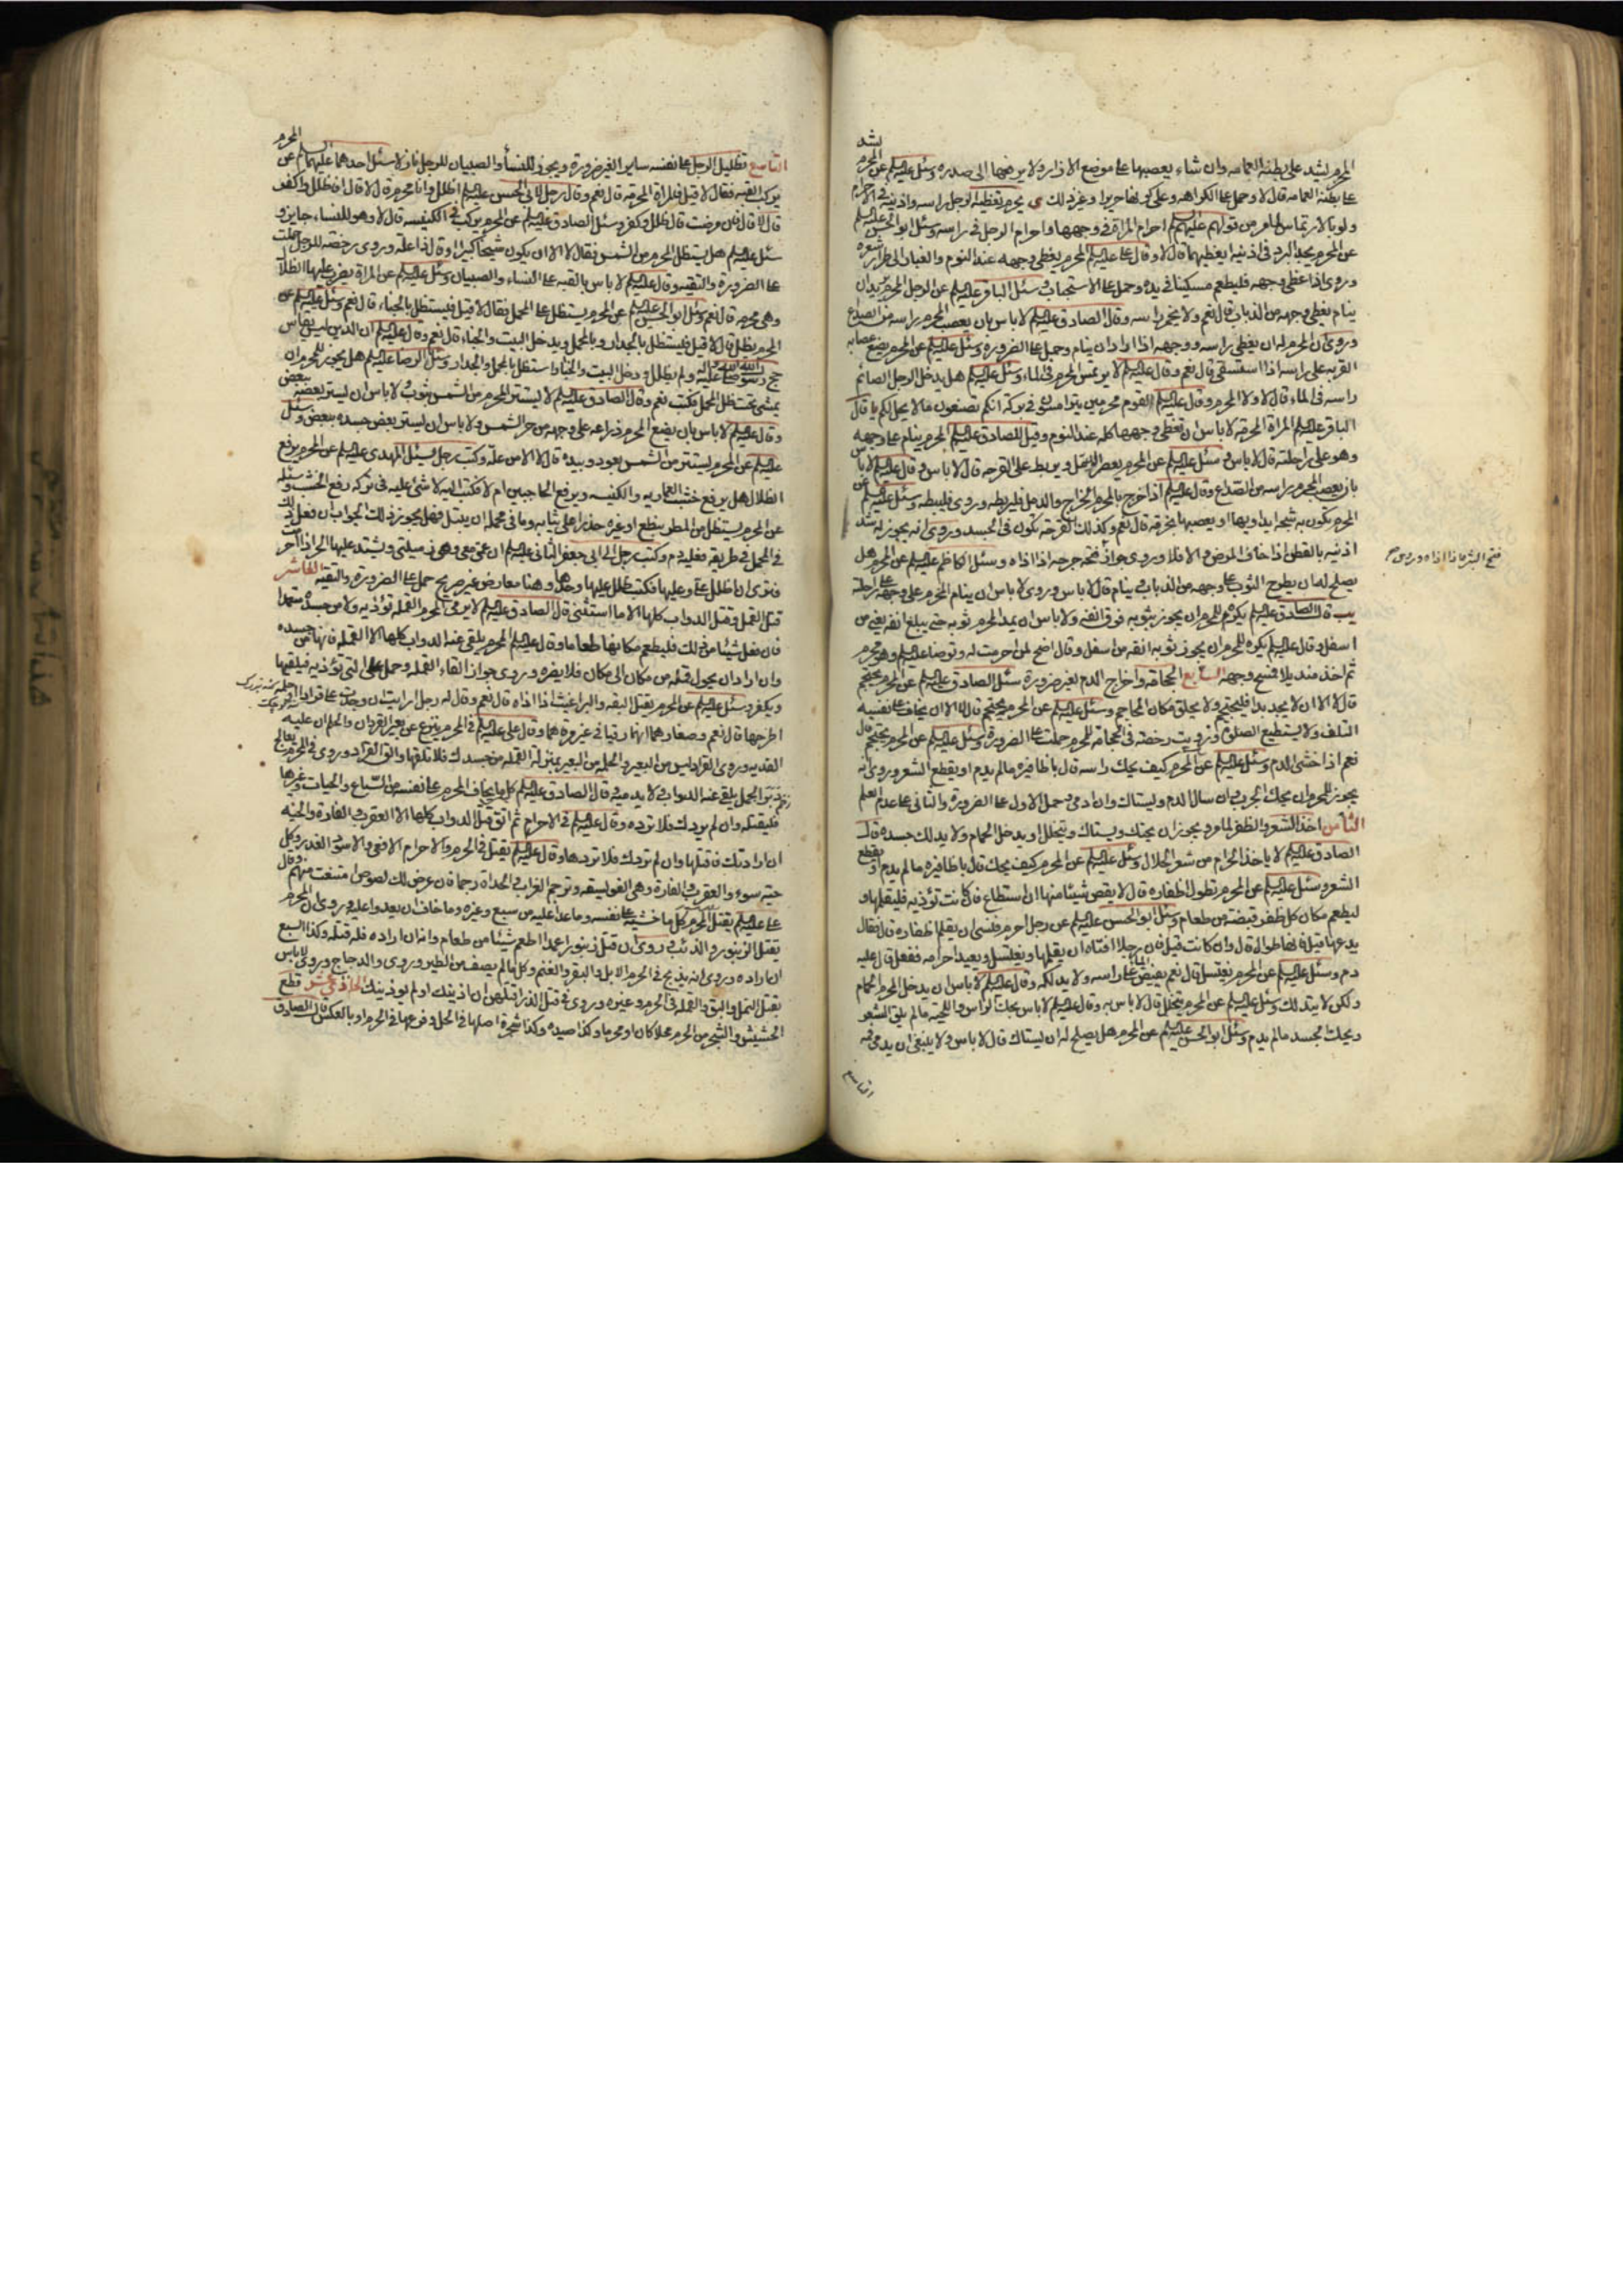 المحرم يشد على بطنه العمامه وان شاء يعصبها على موضع الازار ولا يرفعها الى صدره وسئل عليه السلم عن المحرم يشد
على بطنه العمامه قال لا وحمل على الكراهه وعلى كونها حريرا وغير ذلك ى يحرم تغطية الرجل راسه واذنيه في الاحرام
ولو بالارتماس لما مر من قولهم عليهم السلم احرام المراة في وجهها واحرام الرجل في راسه وسئل ابو الحسن عليه السلم
عن المحرم يجد البرد في اذنيه يغطيهما قال لا وقال على عليه السلم المحرم يغطي وجهه عند النوم والغبار الى طرار شعره
وروى اذا غطى وجهه فليطعم مسكينا في يده وحمل على الاستحباب سئل الباقر عليه السلم عن الرجل المحرم يريد ان
ينام يغطي وجهه من الذباب قال نعم ولا يخمر راسه وقال الصادق عليه السلم لا باس بان يعصب المحرم راسه من الصداع
وروى ان المحرم له ان يغطي راسه ووجهه اذا اراد ان ينام وحمل على الضرورة وسئل عليه السلم عن المحرم يضع عصابه
القربه على راسه اذا استسقى قال نعم وقال عليه السلم لا يرتمس المحرم في الماء وسئل عليه السلم هل يدخل الرجل الصائم
راسه في الماء قال لا ولا المحرم وقال عليه السلم لقوم محرمين يترامسون في بركة انكم تصنعون ما لا يحل لكم يا قال
الباقر عليه السلم المراة المحرمه لا باس ان تغطي وجهها كله عند النوم وقيل للصادق عليه السلم المحرم ينام على وجهه
وهو على راحلته قال لا باس سئل عليه السلم عن المحرم يعصر الدمل ويربط على القرحه قال لا باس وقال عليه السلم لا باس
بان يعصب المحرم راسه من الصداع وقال عليه السلم اذا خرج بالمحرم الخراج والدمل فليربطه وروى فليبطه وسئل عليه السلم عن
المحرم تكون به شجه ايداويها او يعصبها بخرقه قال نعم وكذلك القرحه تكون في الجسد وروى انه يجوز له شد
اذنيه بالقطن اذا خاف المرض والا فلا وروى جواز فتحه جرحه اذا اذاه وسئل الكاظم عليه السلم عن المحرم هل
يصلح له ان يطرح الثوب على وجهه من الذباب ينام قال لا باس وروى لا باس ان ينام المحرم على وجهه على راحلته
يب قال الصادق عليه السلم يكره للمحرم ان يجوز بثوبه فوق انفه ولا باس ان يمد المحرم ثوبه حتى يبلغ انفه يعني من
اسفل وقال عليه السلم يكره للمحرم ان يجوز ثوبه انفه من اسفل وقال اضح لمن احرمت له وتوضأ عليه السلم وهو محرم
ثم اخذ منديلا فمسح وجهه السابع الحجامه واخراج الدم لغير ضرورة سئل الصادق عليه السلم عن المحرم يحتجم
قال لا الا ان لا يجد بدا فليحتجم ولا يحلق مكان المحاجم وسئل عليه السلم عن المحرم يحتجم قال لا الا ان يخاف على نفسه
التلف ولا يستطيع الصلوة ورويت رخصة في الحجامه للمحرم حملت على الضرورة وسئل عليه السلم عن المحرم يحتجم قال
نعم اذا خشى الدم وسئل عليه السلم عن المحرم كيف يحك راسه قال باظافيره ما لم يدم او يقطع الشعر وروى انه
يجوز للمحرم ان يحك الجرب وان سال الدم ويستاك وان ادمى وحمل الاول على الضرورة والثاني على عدم العلم
الثامن اخذ الشعر والظفر لما مر ويجوز ان يحتك ويستاك ويتخلل او يدخل الحمام ولا يدلك جسده قال
الصادق عليه السلم لا ياخذ الحرام من شعر الحلال وسئل عليه السلم عن المحرم كيف يحك قال باظافيره ما لم يدم او يقطع
الشعر وسئل عليه السلم عن المحرم تطول اظفاره قال لا يقص شيئا منها ان استطاع فان كانت تؤذيه فليقلمها و
ليطعم مكان كل ظفر قبضة من طعام وسئل ابو الحسن عليه السلم عن رجل احرم فنسى ان يقلم اظفاره قال فقال
يدعها قيل فانها طوال قال وان كانت قيل فان رجلا افتاه ان يقلمها ويغتسل ويعيد احرامه ففعل قال عليه
دم وسئل عليه السلم عن المحرم يغتسل قال نعم يفيض الماء على راسه ولا يدلكه وقال عليه السلم لا باس ان يدخل المحرم الحمام
ولكن لا يتدلك وسئل عليه السلم عن المحرم يتخلل قال لا باس به وقال عليه السلم لا باس بحك الراس واللحيه ما لم يلق الشعر
ويحك الجسد ما لم يدم وسئل ابو الحسن عليه السلم عن المحرم هل يصلح له ان يستاك قال لا باس ولا ينبغي ان يدمي فيه
التاسع
التاسع تظليل الرجل على نفسه سايرا لغير ضرورة ويجوز للنساء والصبيان للرجل نازلا سئل احدهما عليهما السلم عن المحرم
يركب القبه فقال لا قيل فالمراة المحرمه قال نعم وقال رجل لابي الحسن عليه السلم اظلل وانا محرم قال لا قال فاظلل واكفر
قال لا قال فان مرضت قال ظلل وكفر وسئل الصادق عليه السلم عن المحرم يركب في الكنيسه قال لا وهو للنساء جايز و
سئل عليه السلم هل يستظل المحرم من الشمس فقال لا الا ان يكون شيخا كبيرا او قال ذا علة وروى رخصة للرجل حملت
على الضرورة والتقيه وقال عليه السلم لا باس بالقبه على النساء والصبيان وسئل عليه السلم عن المراة يضرب عليها الظلال
وهي محرمه قال نعم وسئل ابو الحسن عليه السلم عن المحرم يستظل على المحمل فقال لا قيل فيستظل بالخباء قال نعم وسئل عليه السلم عن
المحرم يظلل قال لا قيل فيستظل بالجدار وبالمحمل ويدخل البيت والخباء قال نعم وقال عليه السلم ان الدين ليس يقاس
حج رسول الله صلى الله عليه واله ولم يظلل ودخل البيت والخباء واستظل بالمحمل والجدار وسئل الرضا عليه السلم هل يجوز للمحرم ان
يمشي تحت ظل المحمل فكتب نعم وقال الصادق عليه السلم لا يستتر المحرم من الشمس بثوب ولا باس ان يستر بعضه ببعض
وقال عليه السلم لا باس بان يضع المحرم ذراعه على وجهه من حر الشمس ولا باس ان يستر بعض جسده ببعض وسئل
عليه السلم عن المحرم يستتر من الشمس بعود وبيده قال لا الا من علة وكتب رجل يسئل المهدى عليه السلم عن المحرم يرفع
الظلال هل يرفع خشب العماريه والكنيسه ويرفع الجناحين ام لا فكتب اليه لا شئ عليه في تركه رفع الخشب وسئله
عن المحرم يستظل من المطر بنطع او غيره حذرا على ثيابه وما في محمله ان يبتل فهل يجوز ذلك الجواب ان فعل ذلك
في المحمل في طريقه فعليه دم وكتب رجل الى ابي جعفر الثاني عليه السلم ان عمتي معي وهي زميلتي ويشتد عليها الحر اذا احرمت
فترى ان اظلل على وعليها فكتب ظلل عليها وحدها وهنا معارض غير صريح حمل على الضرورة والتقيه العاشر
قتل القمل وقتل الدواب كلها الا ما استثنى قال الصادق عليه السلم لا يرمي المحرم القمله تؤذيه ولا من جسده متعمدا
فان فعل شيئا من ذلك فليطعم مكانها طعاما وقال عليه السلم المحرم يلقى عنه الدواب كلها الا القمله فانها من جسده
وان اراد ان يحول قمله من مكان الى مكان فلا يضره وروى جواز القاء القمله وحمل على التي تؤذيه فيلقيها
ويكفر وسئل عليه السلم عن المحرم يقتل البقه والبراغيث اذا اذاه قال نعم وقال له رجل ارايت ان وجدت على قرادا او حلمه
اطرحهما قال نعم وصغار لهما انهما رقيا في غير مرقاهما وقال على عليه السلم في المحرم ينزع عن بعيره القردان والحلم ان عليه
الفديه وروى القراد ليس من البعير والحلمه من البعير بمنزلة القمله من جسدك فلا تلقها والق القراد وروى في المحرم يعالج
دبر الجمل يلقي عنه الدواب لا يدميه قال الصادق عليه السلم كل ما يخاف المحرم على نفسه من السباع والحيات وغيرها
فليقتله وان لم يردك فلا ترده وقال عليه السلم في الاحرام ثم اتق قتل الدواب كلها الا العقرب والفارة والحيه
ان ارادتك فاقتلها وان لم تردك فلا تردها وقال عليه السلم يقتل في الحرم والاحرام الافعى والاسود الغدر وكل
حيه سوء والعقرب والفارة وهي الفويسقه وترجم الغراب والحداة رجما فان عرض لك لصوص امتنعت منهم وقال
على عليه السلم يقتل المحرم كل ما خشيه على نفسه وما عدا عليه من سبع وغيره وما خاف ان يعدو عليه وروى ان المحرم
يقتل الزنبور والذئب وروى ان قتل زنبورا عمدا اطعم شيئا من طعام وانه ان اراده فله قتله وكذا السبع
ان اراده وروى انه يذبح في الحرم الابل والبقر والغنم وكل ما لم يصف من الطير وروى والدجاج وروى لا باس
بقتل النمل والبق والقمله في الحرم وغيره وروى في قتل الذر اقتلهن ان اذينك او لم يوذينك الحادي عشر قطع
الحشيش والشجر من الحرم محلا كان او محرما وكذا صيده وكذا شجرة اصلها في الحل وفرعها في الحرم او بالعكس قال الصادق